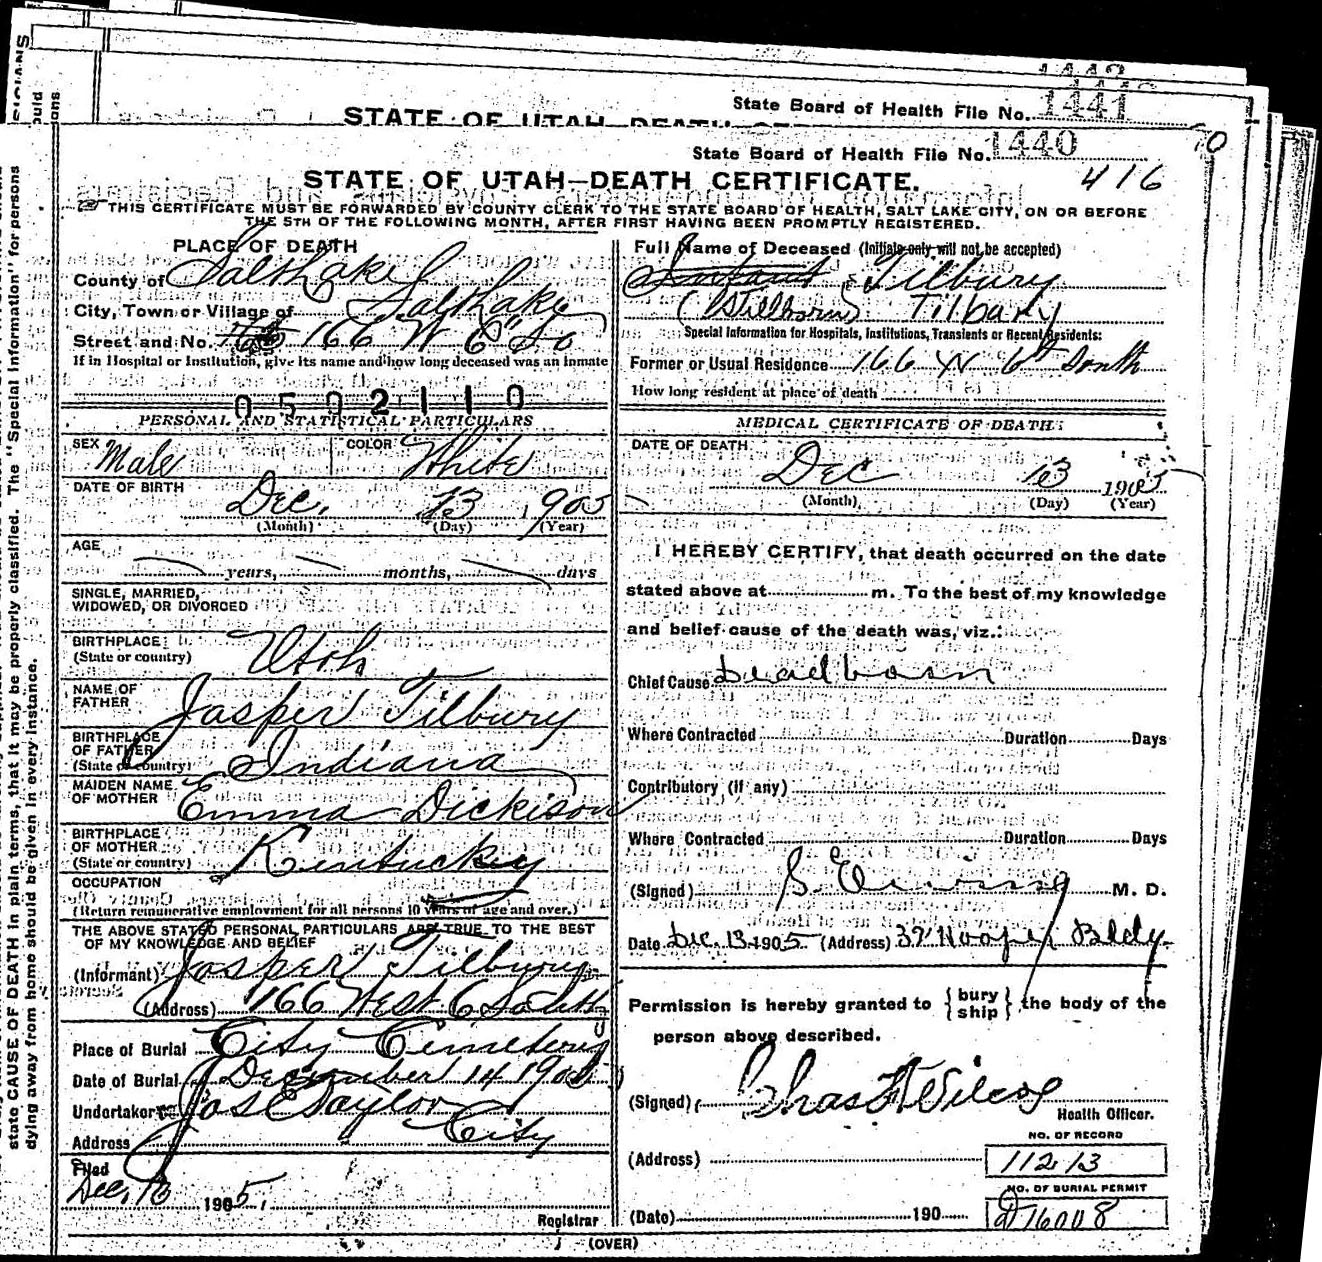 State Board of Health File No. 1441
STATE OF UTAH DEATH
State Board of Health File No. 1440
416
STATE OF UTAH—DEATH CERTIFICATE.
THIS CERTIFICATE MUST BE FORWARDED BY COUNTY CLERK TO THE STATE BOARD OF HEALTH, SALT LAKE CITY, ON OR BEFORE
THE 5TH OF THE FOLLOWING MONTH, AFTER FIRST HAVING BEEN PROMPTLY REGISTERED.
state CAUSE OF DEATH in plain terms, that it may be properly classified. The "Special Information" for persons
dying away from home should be given in every instance.
PLACE OF DEATH
County of Salt Lake
City, Town or Village of Salt Lake
Street and No. 166 W 6" So
If in Hospital or Institution, give its name and how long deceased was an inmate
0502110
PERSONAL AND STATISTICAL PARTICULARS
SEX Male COLOR White
DATE OF BIRTH
Dec. 13 1905
(Month) (Day) (Year)
AGE
years, months, days
SINGLE, MARRIED,
WIDOWED, OR DIVORCED
BIRTHPLACE
(State or country) Utah
NAME OF
FATHER Jasper Tilbury
BIRTHPLACE
OF FATHER
(State or country) Indiana
MAIDEN NAME
OF MOTHER Emma Dickison
BIRTHPLACE
OF MOTHER
(State or country) Kentucky
OCCUPATION
(Return remunerative employment for all persons 10 years of age and over.)
THE ABOVE STATED PERSONAL PARTICULARS ARE TRUE TO THE BEST
OF MY KNOWLEDGE AND BELIEF
(Informant) Jasper Tilbury
(Address) 166 West 6 South
Place of Burial City Cemetery
Date of Burial December 14 1905
Undertaker Jos E Taylor
Address City
Filed
Dec. 13 1905
Registrar
Full Name of Deceased (Initials only will not be accepted)
Infant Tilbury
(Stillborn) Tilbary
Special Information for Hospitals, Institutions, Transients or Recent Residents:
Former or Usual Residence 166 W 6th South
How long resident at place of death
MEDICAL CERTIFICATE OF DEATH
DATE OF DEATH
Dec 13 1905
(Month) (Day) (Year)
I HEREBY CERTIFY, that death occurred on the date
stated above at m. To the best of my knowledge
and belief cause of the death was, viz.:
Chief Cause Dead born
Where Contracted Duration Days
Contributory (if any)
Where Contracted Duration Days
(Signed) S. Ewing M. D.
Date Dec. 13 1905 (Address) 39 Hooper Bldg.
Permission is hereby granted to {bury ship} the body of the
person above described.
(Signed) Chas F Wilcox
Health Officer.
NO. OF RECORD
(Address) 11213
NO. OF BURIAL PERMIT
(Date) 190 D16008
(OVER)